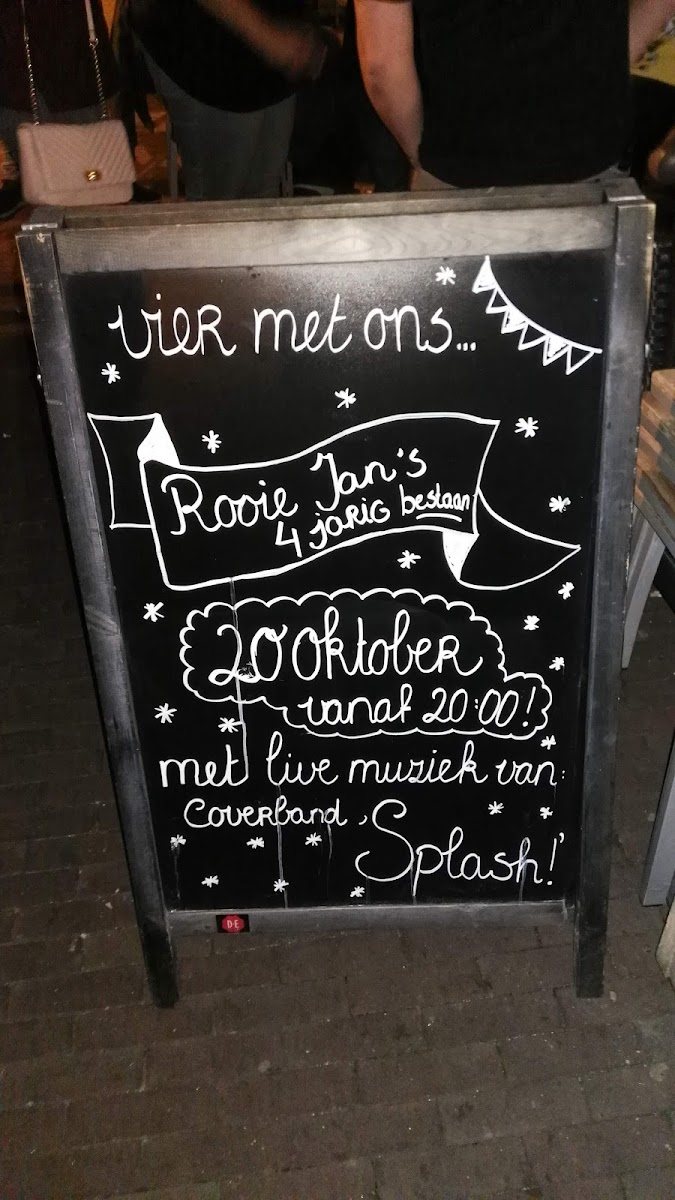 vier met ons...
Rooie Jan's
4 jarig bestaan
20 oktober
vanaf 20:00!
met live muziek van:
Coverband 'Splash!'
D·E